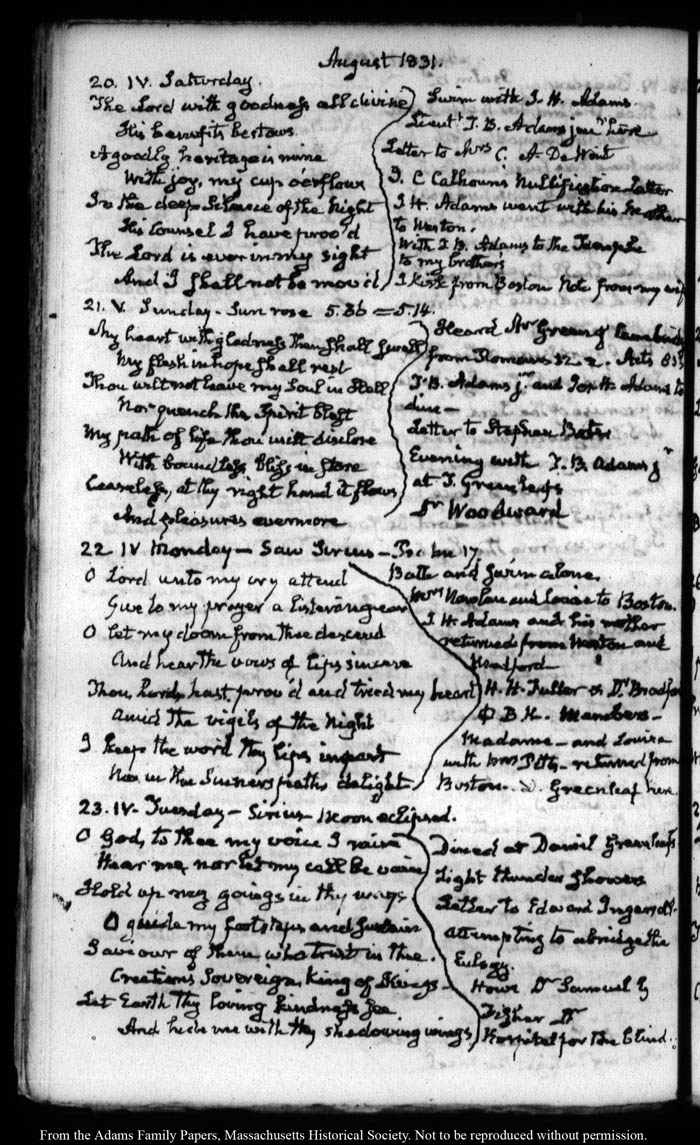 August 1831.
20. IV. Saturday.
The Lord with goodness all divine
His benefits bestows.
A goodly heritage is mine
With joy, my cup o'erflows
In the deep Silence of the Night
His Counsel I have prov'd
The Lord is ever in my sight
And I shall not be mov'd.
Swim with I. H. Adams.
Lieut.t T. B. Adams jun.r here
Letter to Mrs C. A De Wint
J. C Calhouns Nullification Letter
I H. Adams went with his Mother
to Weston.
With T. B. Adams to the Temple
to my brother's
I Kirk from Boston Note from my wife
21. V. Sunday - Sun rose 5.36 = 5.14.
My heart with gladness then shall swell
My flesh in hope shall rest
Thou wilt not leave my Soul in Hell
Nor quench the Spirit blest
My path of life thou wilt disclose
With boundless bliss in store
Ceaseless, at thy right hand it flows
And pleasures evermore
Heard Mr Green of Cambridge
from Romans 12. 2. Acts
T. B. Adams jr. and Jos. H. Adams to
dine —
Letter to Stephen Bates
Evening with T. B. Adams jr
at T. Greenleafs
Dr Woodward
22. IV. Monday — Saw Sirius — Psalm 17.
O Lord unto my cry attend
Give to my prayer a listening ear
O let my doom from thee descend
And hear the vows of lips sincere
Thou, Lord, hast prov'd and tried my heart
Amid the vigils of the Night
I keep the word thy lips impart
Nor in the Sinners paths delight.
Bath and swim alone.
Mrs Nowlan and to Boston.
I. H. Adams and his mother
returned from Weston and
Medford
H. H. Fuller & Dr. Bradford
Φ B K. Members —
Madame — and Louisa
with Mrs — returned from
Boston. D. Greenleaf here.
23. IV. Tuesday — Sirius — Moon eclipsed.
O God, to thee my voice I raise
Hear me, nor let my call be vain
Hold up my goings in thy ways
O guide my footsteps and sustain
Saviour of them who trust in thee.
Creations Sovereign, King of Kings —
Let Earth thy loving kindness see
And hide me with thy shadowing wings
Dined at Daniel Greenleafs
Light thunder showers
Letter to Edward Ingersoll.
Attempting to abridge the
Eulogy.
Howe Dr Samuel G
Fisher Dr
Hospital for the blind.
From the Adams Family Papers, Massachusetts Historical Society. Not to be reproduced without permission.